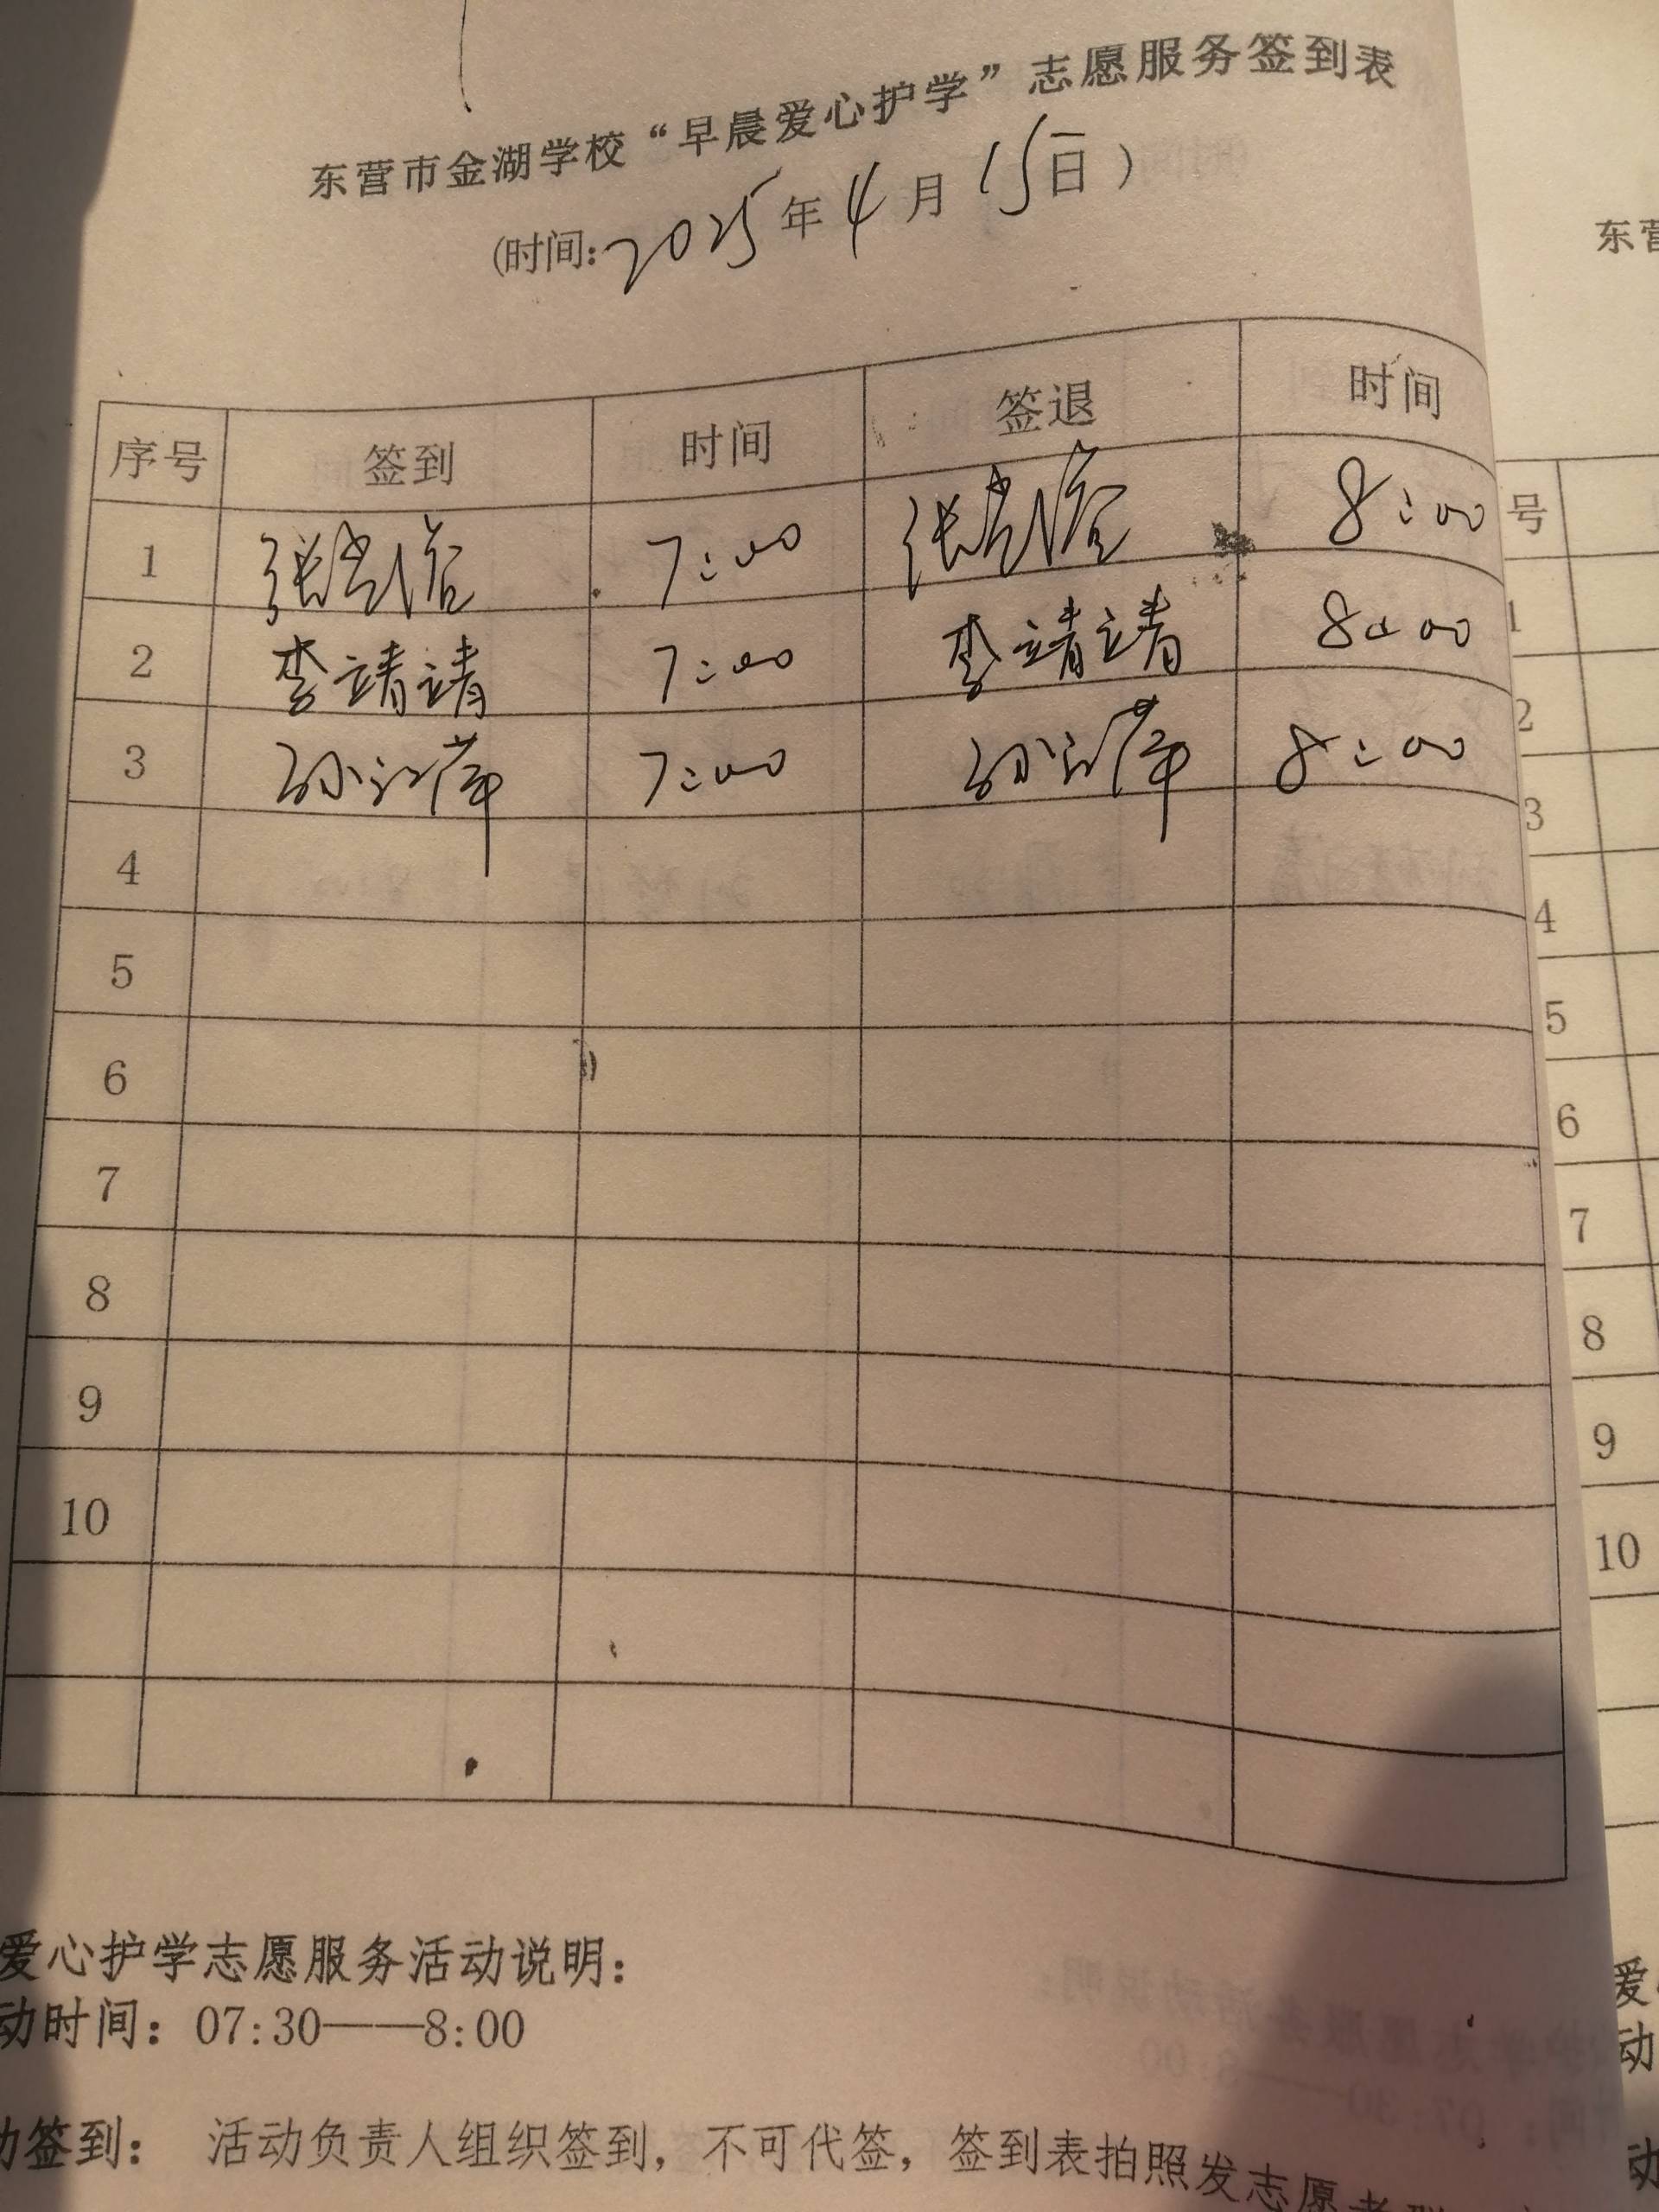 东营市金湖学校“早晨爱心护学”志愿服务签到表
(时间:2025年4月15日)
序号 签到 时间 签退 时间
1 张 7:00 张 8:00
2 李靖靖 7:00 李靖靖 8:00
3 孙江萍 7:00 孙江萍 8:00
4
5
6
7
8
9
10
爱心护学志愿服务活动说明:
动时间:07:30——8:00
动签到: 活动负责人组织签到,不可代签,签到表拍照发志愿者
东营
号
1
2
3
4
5
6
7
8
9
10
爱
动
动